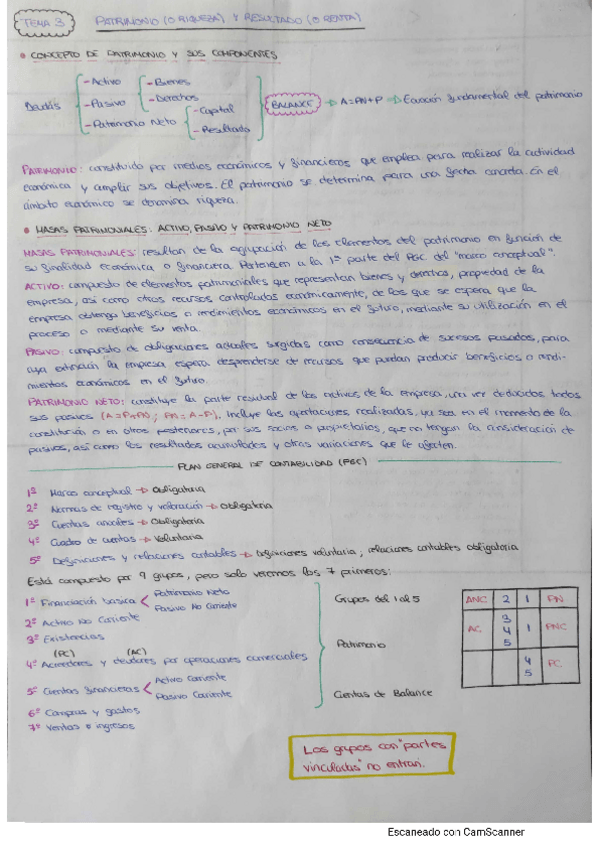 TEMA 3 PATRIMONIO (O RIQUEZA) Y RESULTADO (O RENTA)
• CONCEPTO DE PATRIMONIO Y SUS COMPONENTES
- Activo - Bienes
- Derechos
- Pasivo
- Patrimonio Neto - Capital
- Resultado
BALANCE → A=PN+P → Ecuación fundamental del patrimonio
PATRIMONIO: constituido por medios económicos y financieros que emplea para realizar la actividad
económica y ampliar sus objetivos. El patrimonio se determina para una fecha concreta. En el
ámbito económico se denomina riqueza.
• MASAS PATRIMONIALES: ACTIVO, PASIVO Y PATRIMONIO NETO
MASAS PATRIMONIALES: resultan de la agrupación de los elementos del patrimonio en función de
su finalidad económica o financiera. Pertenecen a la 1ª parte del PGC del "marco conceptual".
ACTIVO: compuesto de elementos patrimoniales que representan bienes y derechos, propiedad de la
empresa, así como otros recursos controlados económicamente, de los que se espera que la
empresa obtenga beneficios o rendimientos económicos en el futuro, mediante su utilización en el
proceso o mediante su venta.
PASIVO: compuesto de obligaciones actuales surgidas como consecuencia de sucesos pasados, para
cuya extinción la empresa espera desprenderse de recursos que puedan producir beneficios o rendi-
mientos económicos en el futuro.
PATRIMONIO NETO: constituye la parte residual de los activos de la empresa, una vez deducidos todos
sus pasivos (A=P+PN; PN=A-P). Incluye las aportaciones realizadas, ya sea en el momento de la
constitución o en otros posteriores, por sus socios o propietarios, que no tengan la consideración de
pasivos, así como los resultados acumulados y otras variaciones que le afecten.
PLAN GENERAL DE CONTABILIDAD (PGC)
1º Marco conceptual → Obligatoria
2º Normas de registro y valoración → Obligatoria
3º Cuentas anuales → Obligatoria
4º Cuadro de cuentas → Voluntaria
5º Definiciones y relaciones contables → Definiciones voluntaria; relaciones contables obligatoria
Está compuesto por 9 grupos, pero solo veremos los 7 primeros:
1º Financiación básica < Patrimonio Neto
Pasivo No Corriente
2º Activo No Corriente
3º Existencias
(PC) (AC)
4º Acreedores y deudores por operaciones comerciales
5º Cuentas financieras < Activo Corriente
Pasivo Corriente
6º Compras y gastos
7º Ventas e ingresos
Grupos del 1 al 5
Patrimonio
Cuentas de Balance
ANC 2 1 PN
AC 3 4 5 1 PNC
4 5 PC
Los grupos con "partes
vinculadas" no entran.
Escaneado con CamScanner